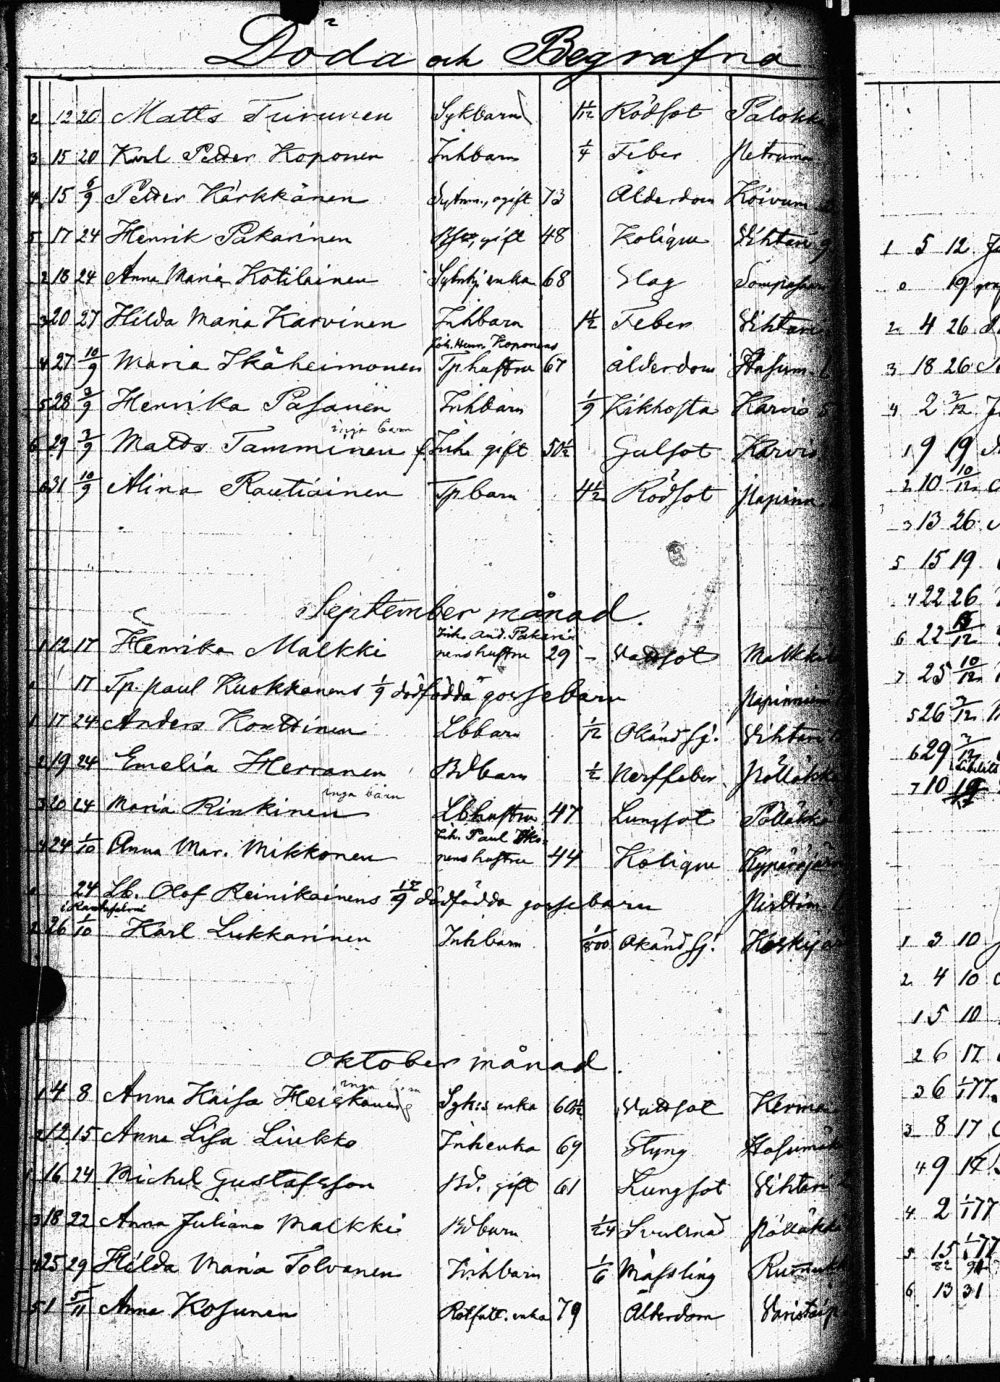 Döda och Begrafna
2 12 20 Matts Turunen Sykbarn 1/12 Rödsot Palokk
3 15 20 Karl Peter Koponen Inhbarn 1/4 Feber Petruma
4 15 6/9 Petter Kärkkänen 73 Ålderdom Koivum
5 17 24 Henrik Pakarinen gift 48 Kolique Vihtari 9
2 18 24 Anna Maria Kotilainen enka 68 Slag
3 20 27 Hilda Maria Karvinen Inhbarn 1 1/2 Feber Vihtari
Joh. Henr. Koponens
4 27 10/9 Maria Ikäheimonen Tphustru 67 Ålderdom Hasum
5 28 3/9 Henrika Pasanen Inhbarn 1/9 Kikhosta Karvio 5
inga barn
6 29 3/9 Matts Tamminen f. Inh. gift 50 1/2 Gulsot Karvio
6 31 10/9 Alina Rautiainen Tpbarn 4 1/2 Rödsot Papinn
September månad.
Inh. And. Pakari
1 12 17 Henrika Malkki nens hustru 29 - Vattsot Malkki
17 Tp. Paul Kuokkanens 1/9 dödfödda gossebarn Papinnie
1 17 24 Anders Konttinen Lbbarn 1/12 Okänd sj. Vihtari
2 19 24 Emelia Herranen Bdbarn 1/2 Nerffeber Pölläkkä
inga barn
3 20 24 Maria Rinkinen Lbhustru 47 Lungsot Pölläkkä
Inh. Paul
4 24 1/10 Anna Mar. Mikkonen nens hustru 44 Kolique Hypäröjär
24 Lb. Olof Reinikainens 17/9 dödfödda gossebarn
2 26 1/10 Karl Lukkarinen Inhbarn 1/800 Okänd sj. Kesky
Oktober månad.
inga barn
1 4 8 Anna Kaisa Heiskanen enka 60 1/2 Vattsot Kerma
2 12 15 Anna Lisa Liukko Inhenka 69 Styng Hasumä
1 16 24 Michel Gustafsson Bd. gift 61 Lungsot Vihtari
3 18 22 Anna Juliana Malkki Bdbarn 1/24 Svullnad Pölläkkä
4 25 29 Hilda Maria Tolvanen Inhbarn 1/6 Mässling
5 1 5/11 Anna Kosunen Rotfatt. enka 79 Ålderdom Varistaip
1 5 12
19
2 4 26
3 18 26
4 2 3/12
1 9 19
2 10 10/12
3 13 26
5 15 19
4 22 26
6 22
7 25 10/12
5 26 3/12
6 29
7 10
1 3 10
2 4 10
1 5 10
2 6 17
3 6 1/177
3 8 17
4 9 17
4 2 1/177
5 15
6 13 31